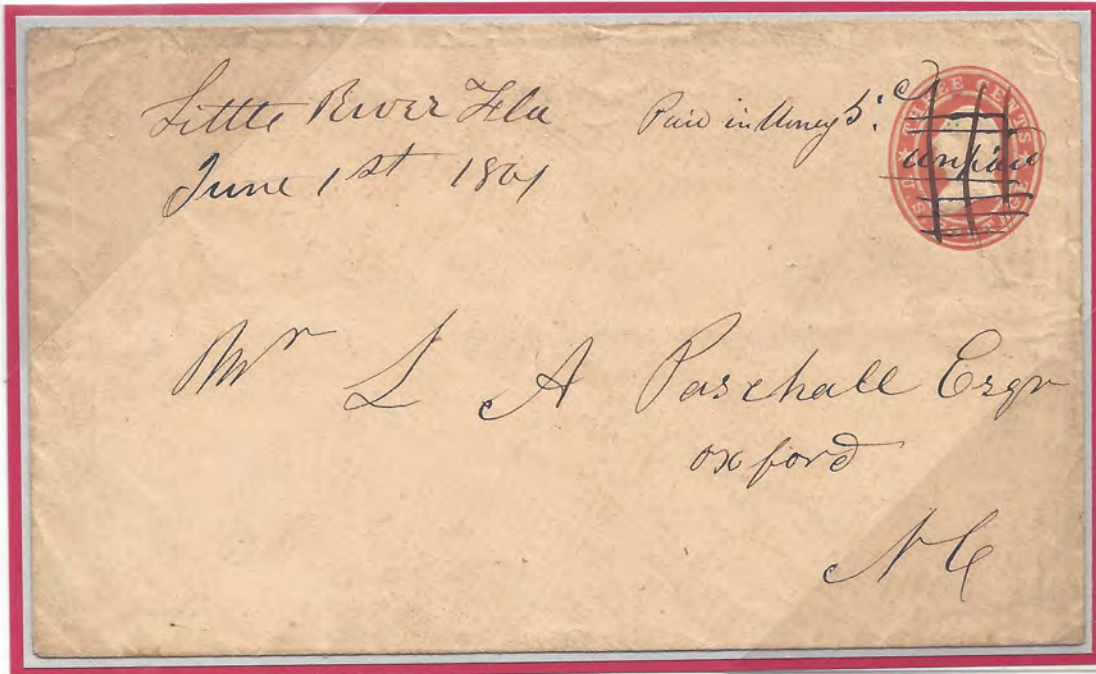 Little River Fla
June 1st 1861
Paid in Money 5c
unpaid
★ THREE CENTS ★
U.S. POSTAGE
Mr L A Paschall Esqr
oxford
N C